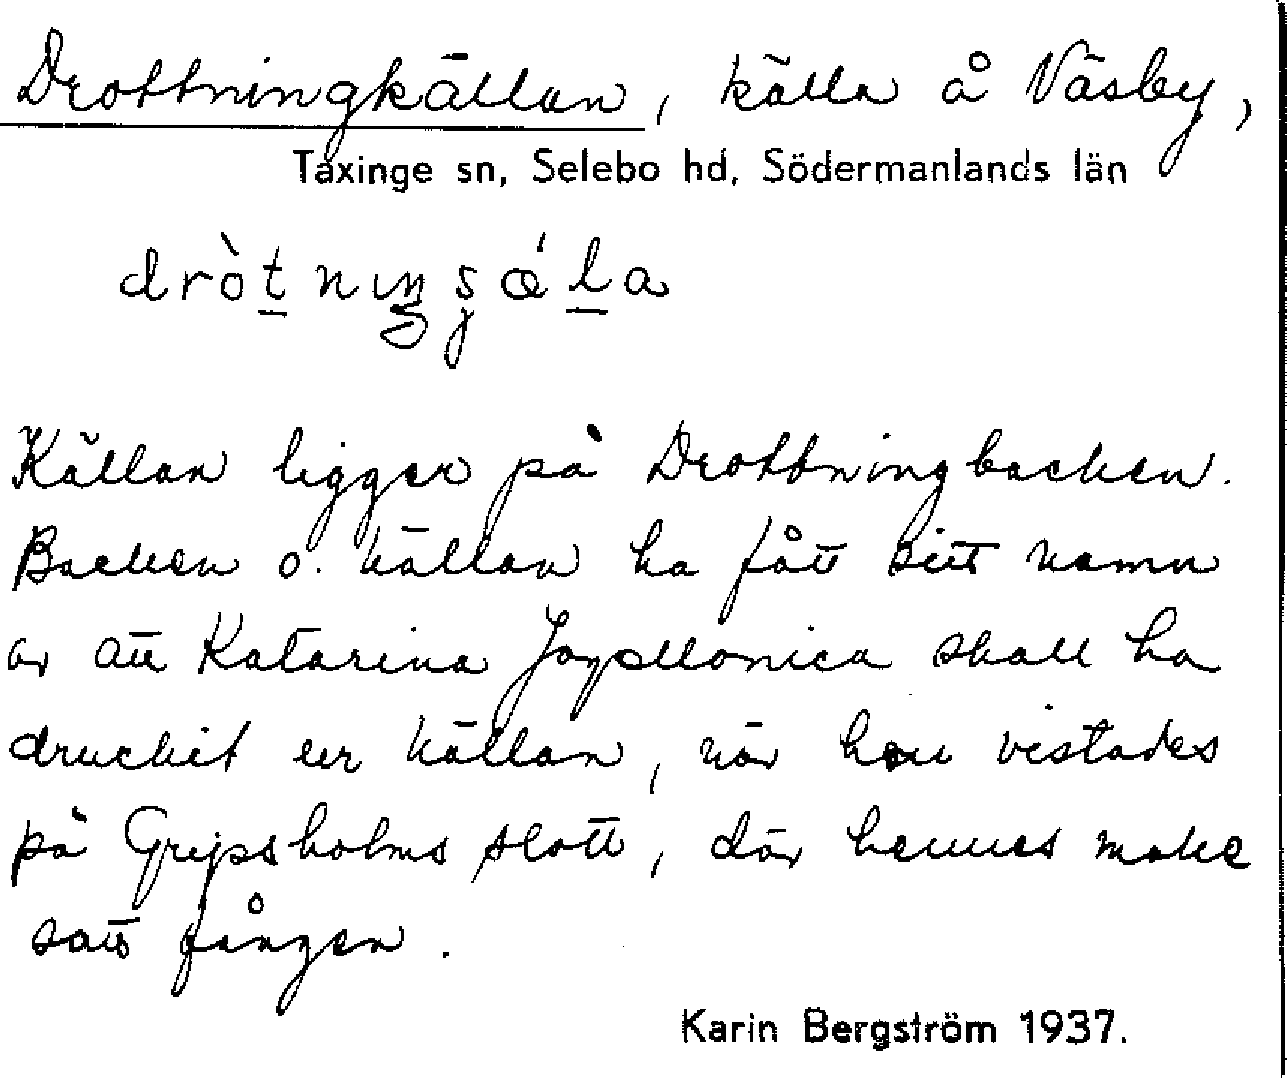 Drottningkällan, källa å Väsby,
Taxinge sn, Selebo hd, Södermanlands län
Källan ligger på Drottningbacken.
Backen o. källan ha fått sitt namn
av att Katarina Jagellonica skall ha
druckit ur källan, när hon vistades
på Gripsholms slott, där hennes make
satt fången.
Karin Bergström 1937.